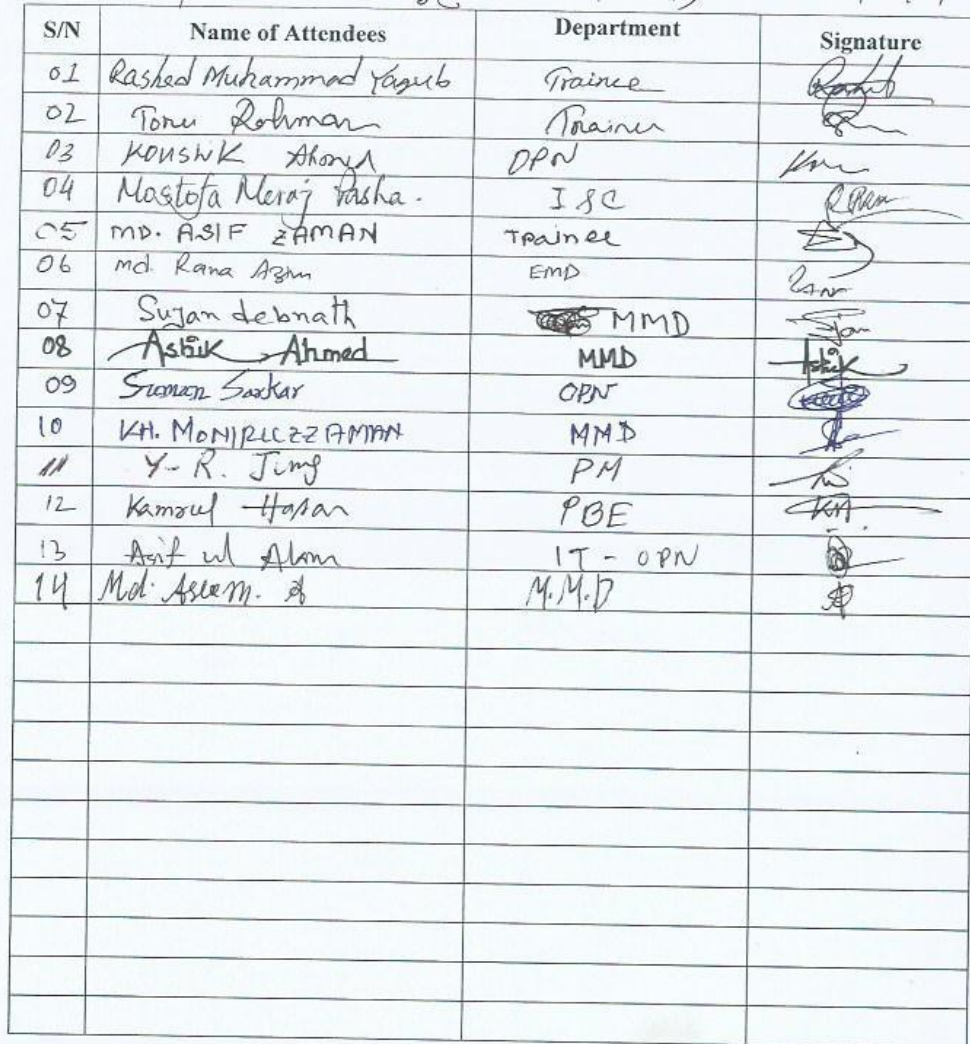 S/N Name of Attendees Department Signature
01 Rashed Muhammad Yaqub Trainee
02 Tonu Rohman Trainer
03 KOUSHIK Ahmed OPN
04 Mostofa Meraj Pasha. I&C
05 MD. ASIF ZAMAN Trainee
06 md. Rana Azim EMD
07 Sujan debnath MMD
08 Ashik Ahmed MMD Ashik
09 Suman Sarkar OPN
10 KH. MONIRUZZAMAN MMD
11 Y-R. Jung PM
12 Kamrul Hasan PBE KH
13 Asif ul Alam IT - OPN
14 Md. Aslam. M.M.D